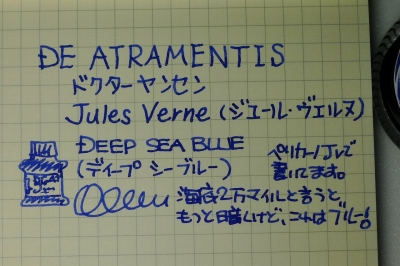 DE ATRAMENTIS
ドクターヤンセン
Jules Verne (ジュール・ヴェルヌ)
DEEP SEA BLUE
(ディープ シーブルー)
ペリカーノJr.で
書いてます。
海底2万マイルと言うと、
もっと暗いけど、これはブルー!